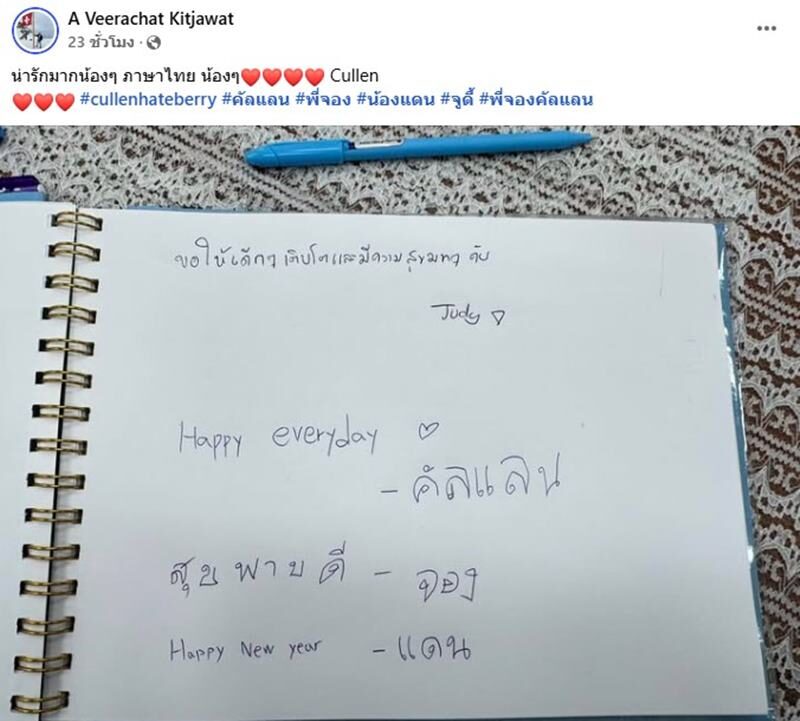 A Veerachat Kitjawat
23 ชั่วโมง
น่ารักมากน้องๆ ภาษาไทย น้องๆ❤️❤️❤️❤️ Cullen
❤️❤️❤️ #cullenhateberry #คัลแลน #พี่จอง #น้องแดน #จูดี้ #พี่จองคัลแลน
ขอให้เด็กๆ เติบโตและมีความสุขมากๆ
Judy ♡
Happy everyday ♡
- คัลแลน
สุขพาบดี - จอง
Happy New year - แดน